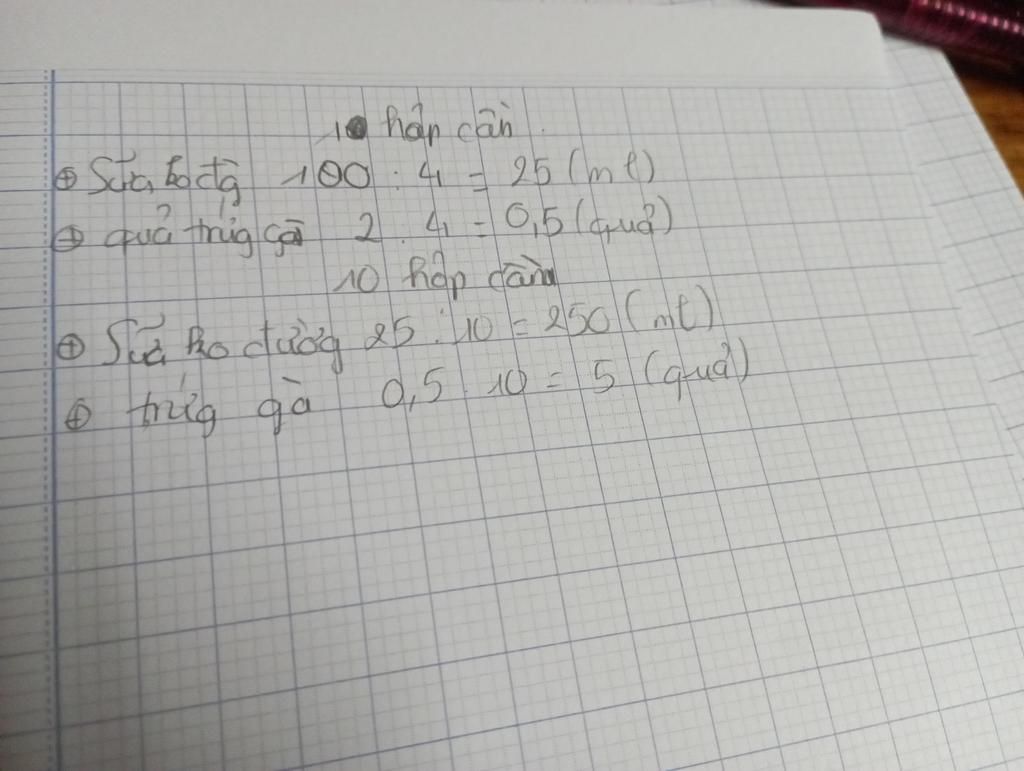 1 hộp cần
⊕ Sữa ko đg 100 : 4 = 25 (ml)
⊕ quả trúg gà 2 : 4 = 0,5 (quả)
10 hộp cần
⊕ Sữa ko đường 25 . 10 = 250 (ml)
⊕ trúg gà 0,5 . 10 = 5 (quả)